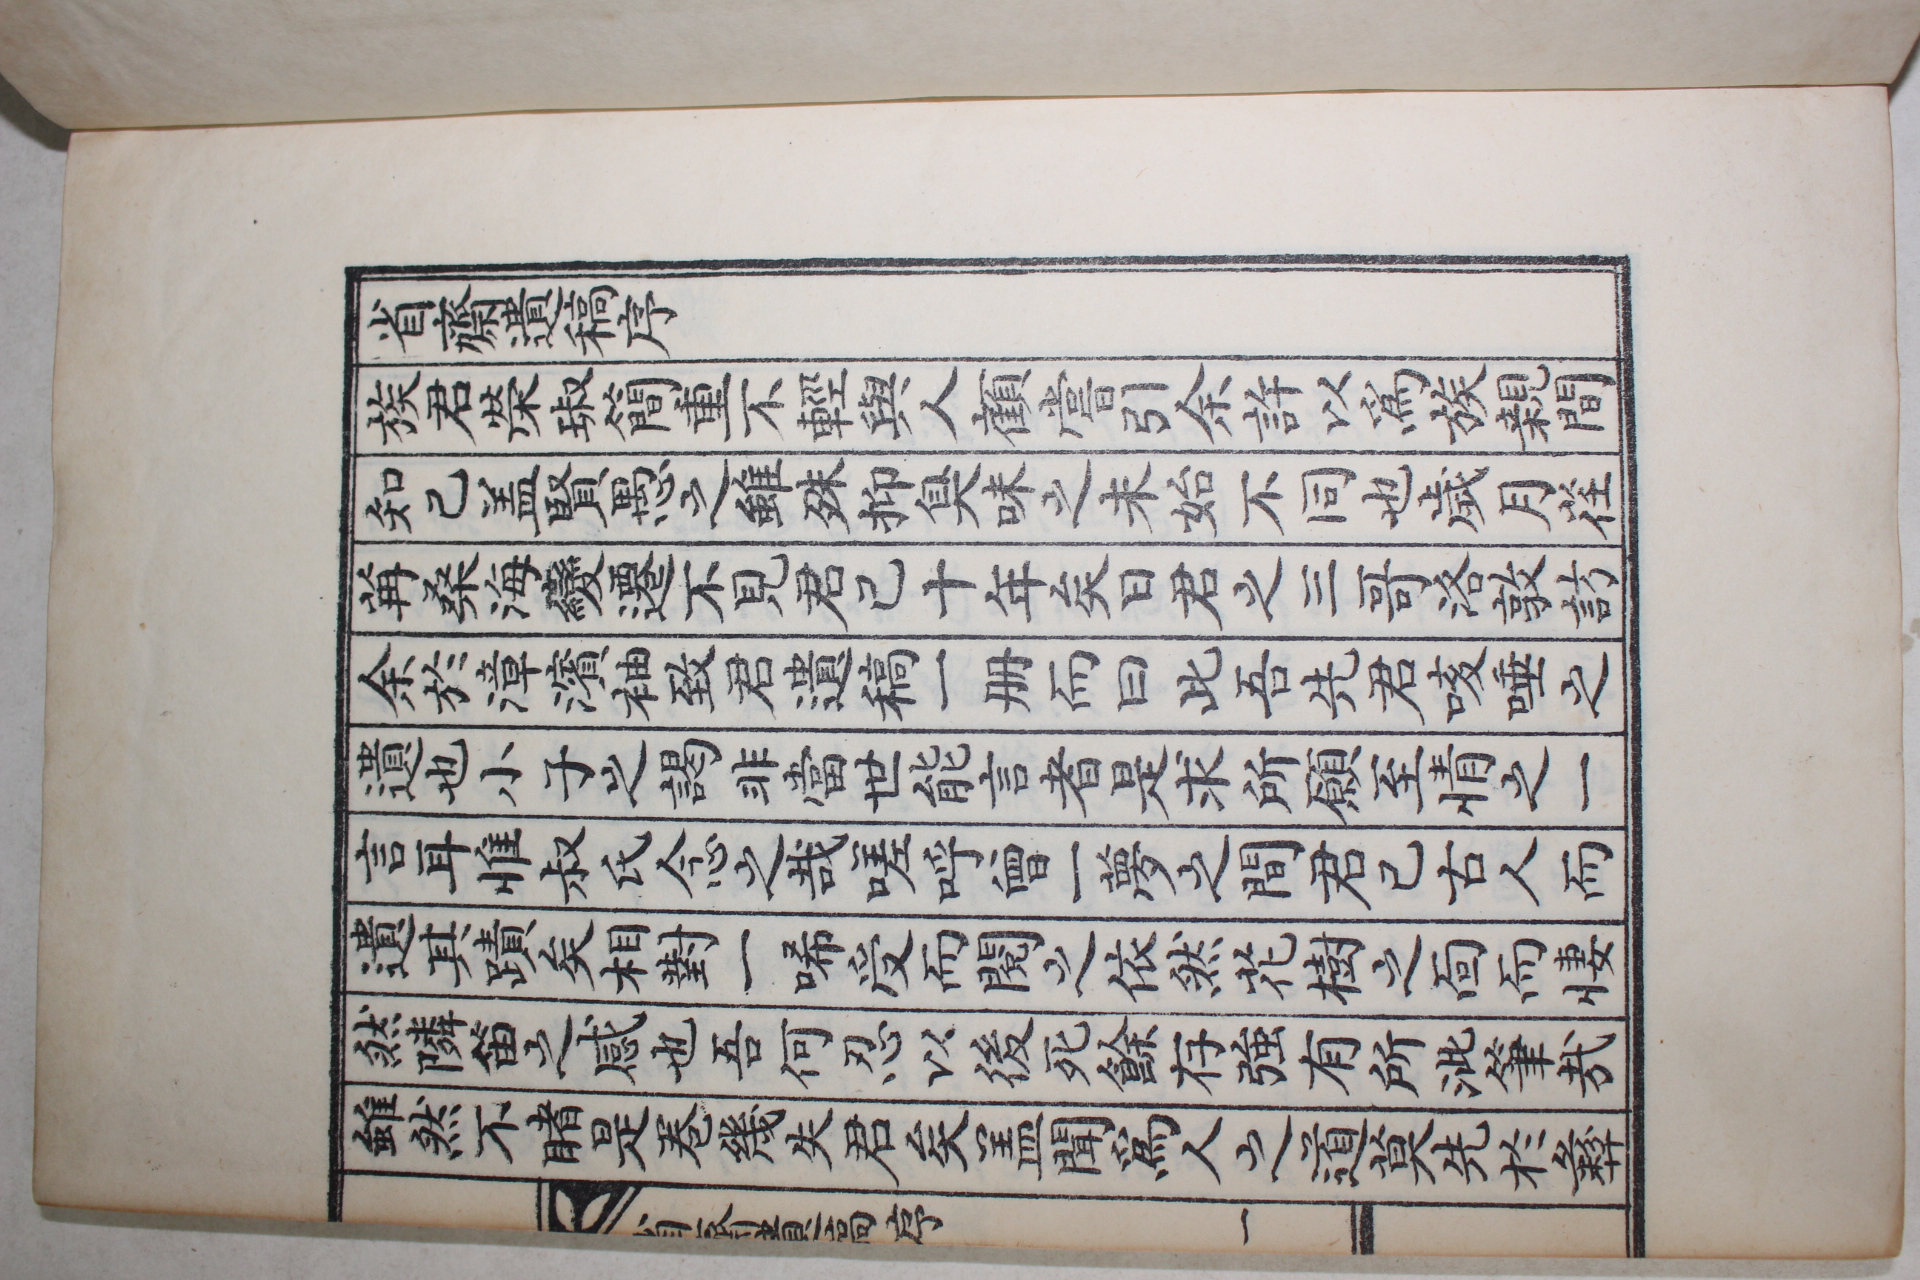 省齋遺稿序
族君榮琡簡重不輕與人顧嘗引余許以爲族親間
知己盖賢愚之雖殊抑臭味之未始不同也歲月荏
苒桑海變遷不見君已十年矣日君之三哥洛敦訪
余於漳濱袖致君遺稿一册而曰此吾先君咳唾之
遺也小子之謁非當世能言者是求所願至情之一
言耳惟叔氏念之哉嗟呼曾一夢之間君已古人而
遺其蹟矣相對一唏受而閱之依然花樹之面而悽
然隣笛之感也吾何忍以後死餘存強有所泚筆哉
雖然不睹是卷幾失君矣盖聞爲人之道莫先於彜
省齋遺稿 序
一